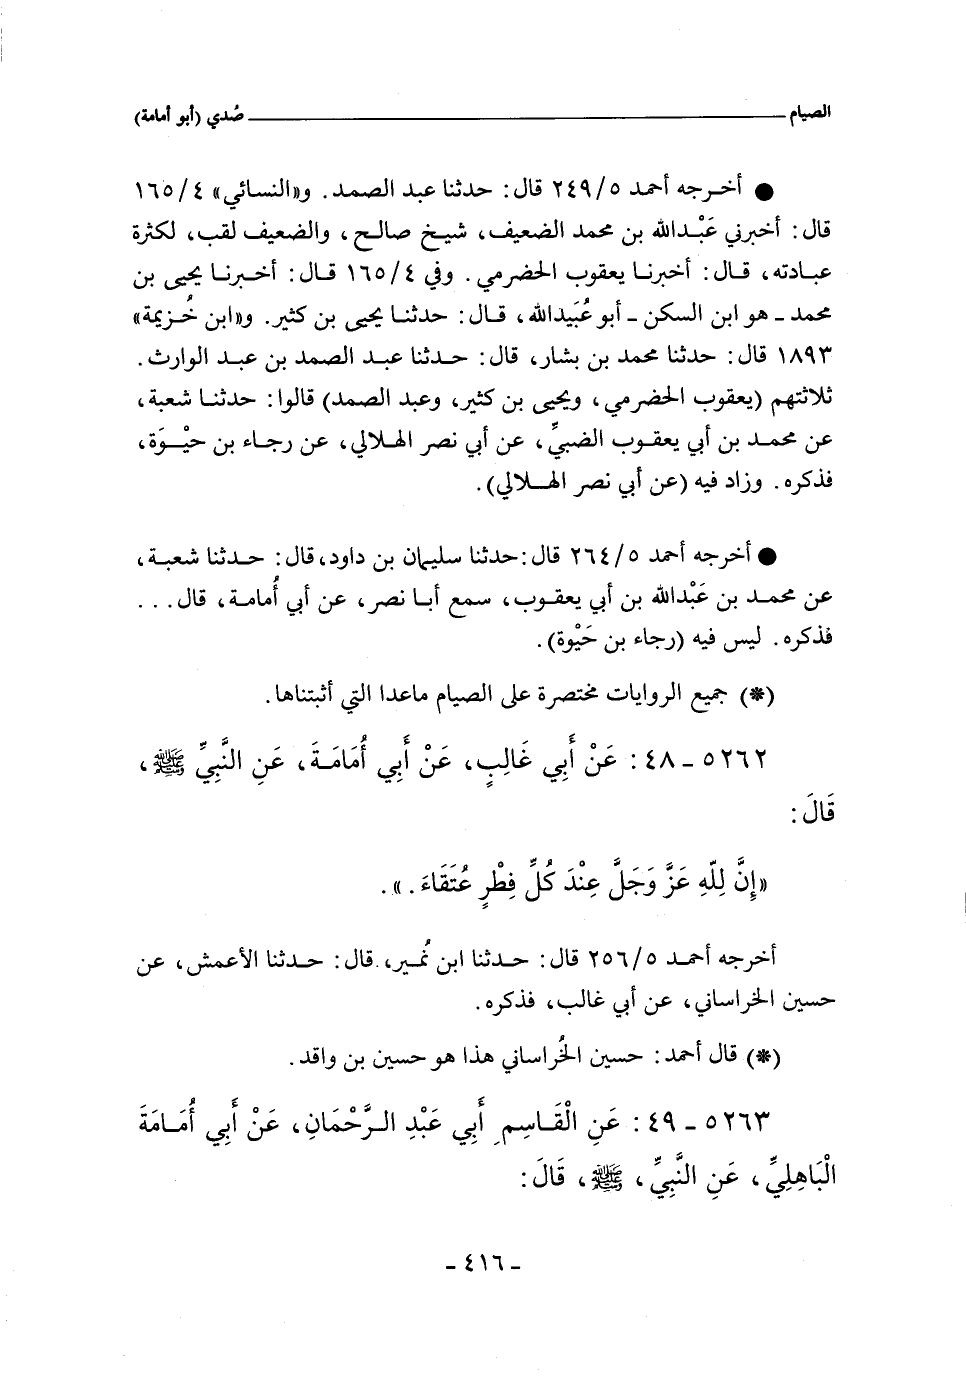 الصيام صُدي (أبو أمامة)
● أخرجه أحمد ٥/٢٤٩ قال: حدثنا عبد الصمد. و«النسائي» ٤/١٦٥
قال: أخبرني عَبْدالله بن محمد الضعيف، شيخ صالح، والضعيف لقب، لكثرة
عبادته، قال: أخبرنا يعقوب الحضرمي. وفي ٤/١٦٥ قال: أخبرنا يحيى بن
محمد - هو ابن السكن - أبو عُبَيدالله، قال: حدثنا يحيى بن كثير. و«ابن خُزيمة»
١٨٩٣ قال: حدثنا محمد بن بشار، قال: حدثنا عبد الصمد بن عبد الوارث.
ثلاثتهم (يعقوب الحضرمي، ويحيى بن كثير، وعبد الصمد) قالوا: حدثنا شعبة،
عن محمد بن أبي يعقوب الضبيِّ، عن أبي نصر الهلالي، عن رجاء بن حيْوَة،
فذكره. وزاد فيه (عن أبي نصر الهلالي).
● أخرجه أحمد ٥/٢٦٤ قال: حدثنا سليمان بن داود، قال: حدثنا شعبة،
عن محمد بن عَبْدالله بن أبي يعقوب، سمع أبا نصر، عن أبي أُمامة، قال...
فذكره. ليس فيه (رجاء بن حَيْوة).
(*) جميع الروايات مختصرة على الصيام ماعدا التي أثبتناها.
٥٢٦٢ - ٤٨: عَنْ أَبِي غَالِبٍ، عَنْ أَبِي أُمَامَةَ، عَنِ النَّبِيِّ ﷺ،
قَالَ:
«إِنَّ لِلّهِ عَزَّ وَجَلَّ عِنْدَ كُلِّ فِطْرٍ عُتَقَاءَ.».
أخرجه أحمد ٥/٢٥٦ قال: حدثنا ابن نُمير، قال: حدثنا الأعمش، عن
حسين الخراساني، عن أبي غالب، فذكره.
(*) قال أحمد: حسين الخُراساني هذا هو حسين بن واقد.
٥٢٦٣ - ٤٩: عَنِ الْقَاسِمِ أَبِي عَبْدِ الرَّحْمَانِ، عَنْ أَبِي أُمَامَةَ
الْبَاهِلِيِّ، عَنِ النَّبِيِّ، ﷺ، قَالَ:
- ٤١٦ -